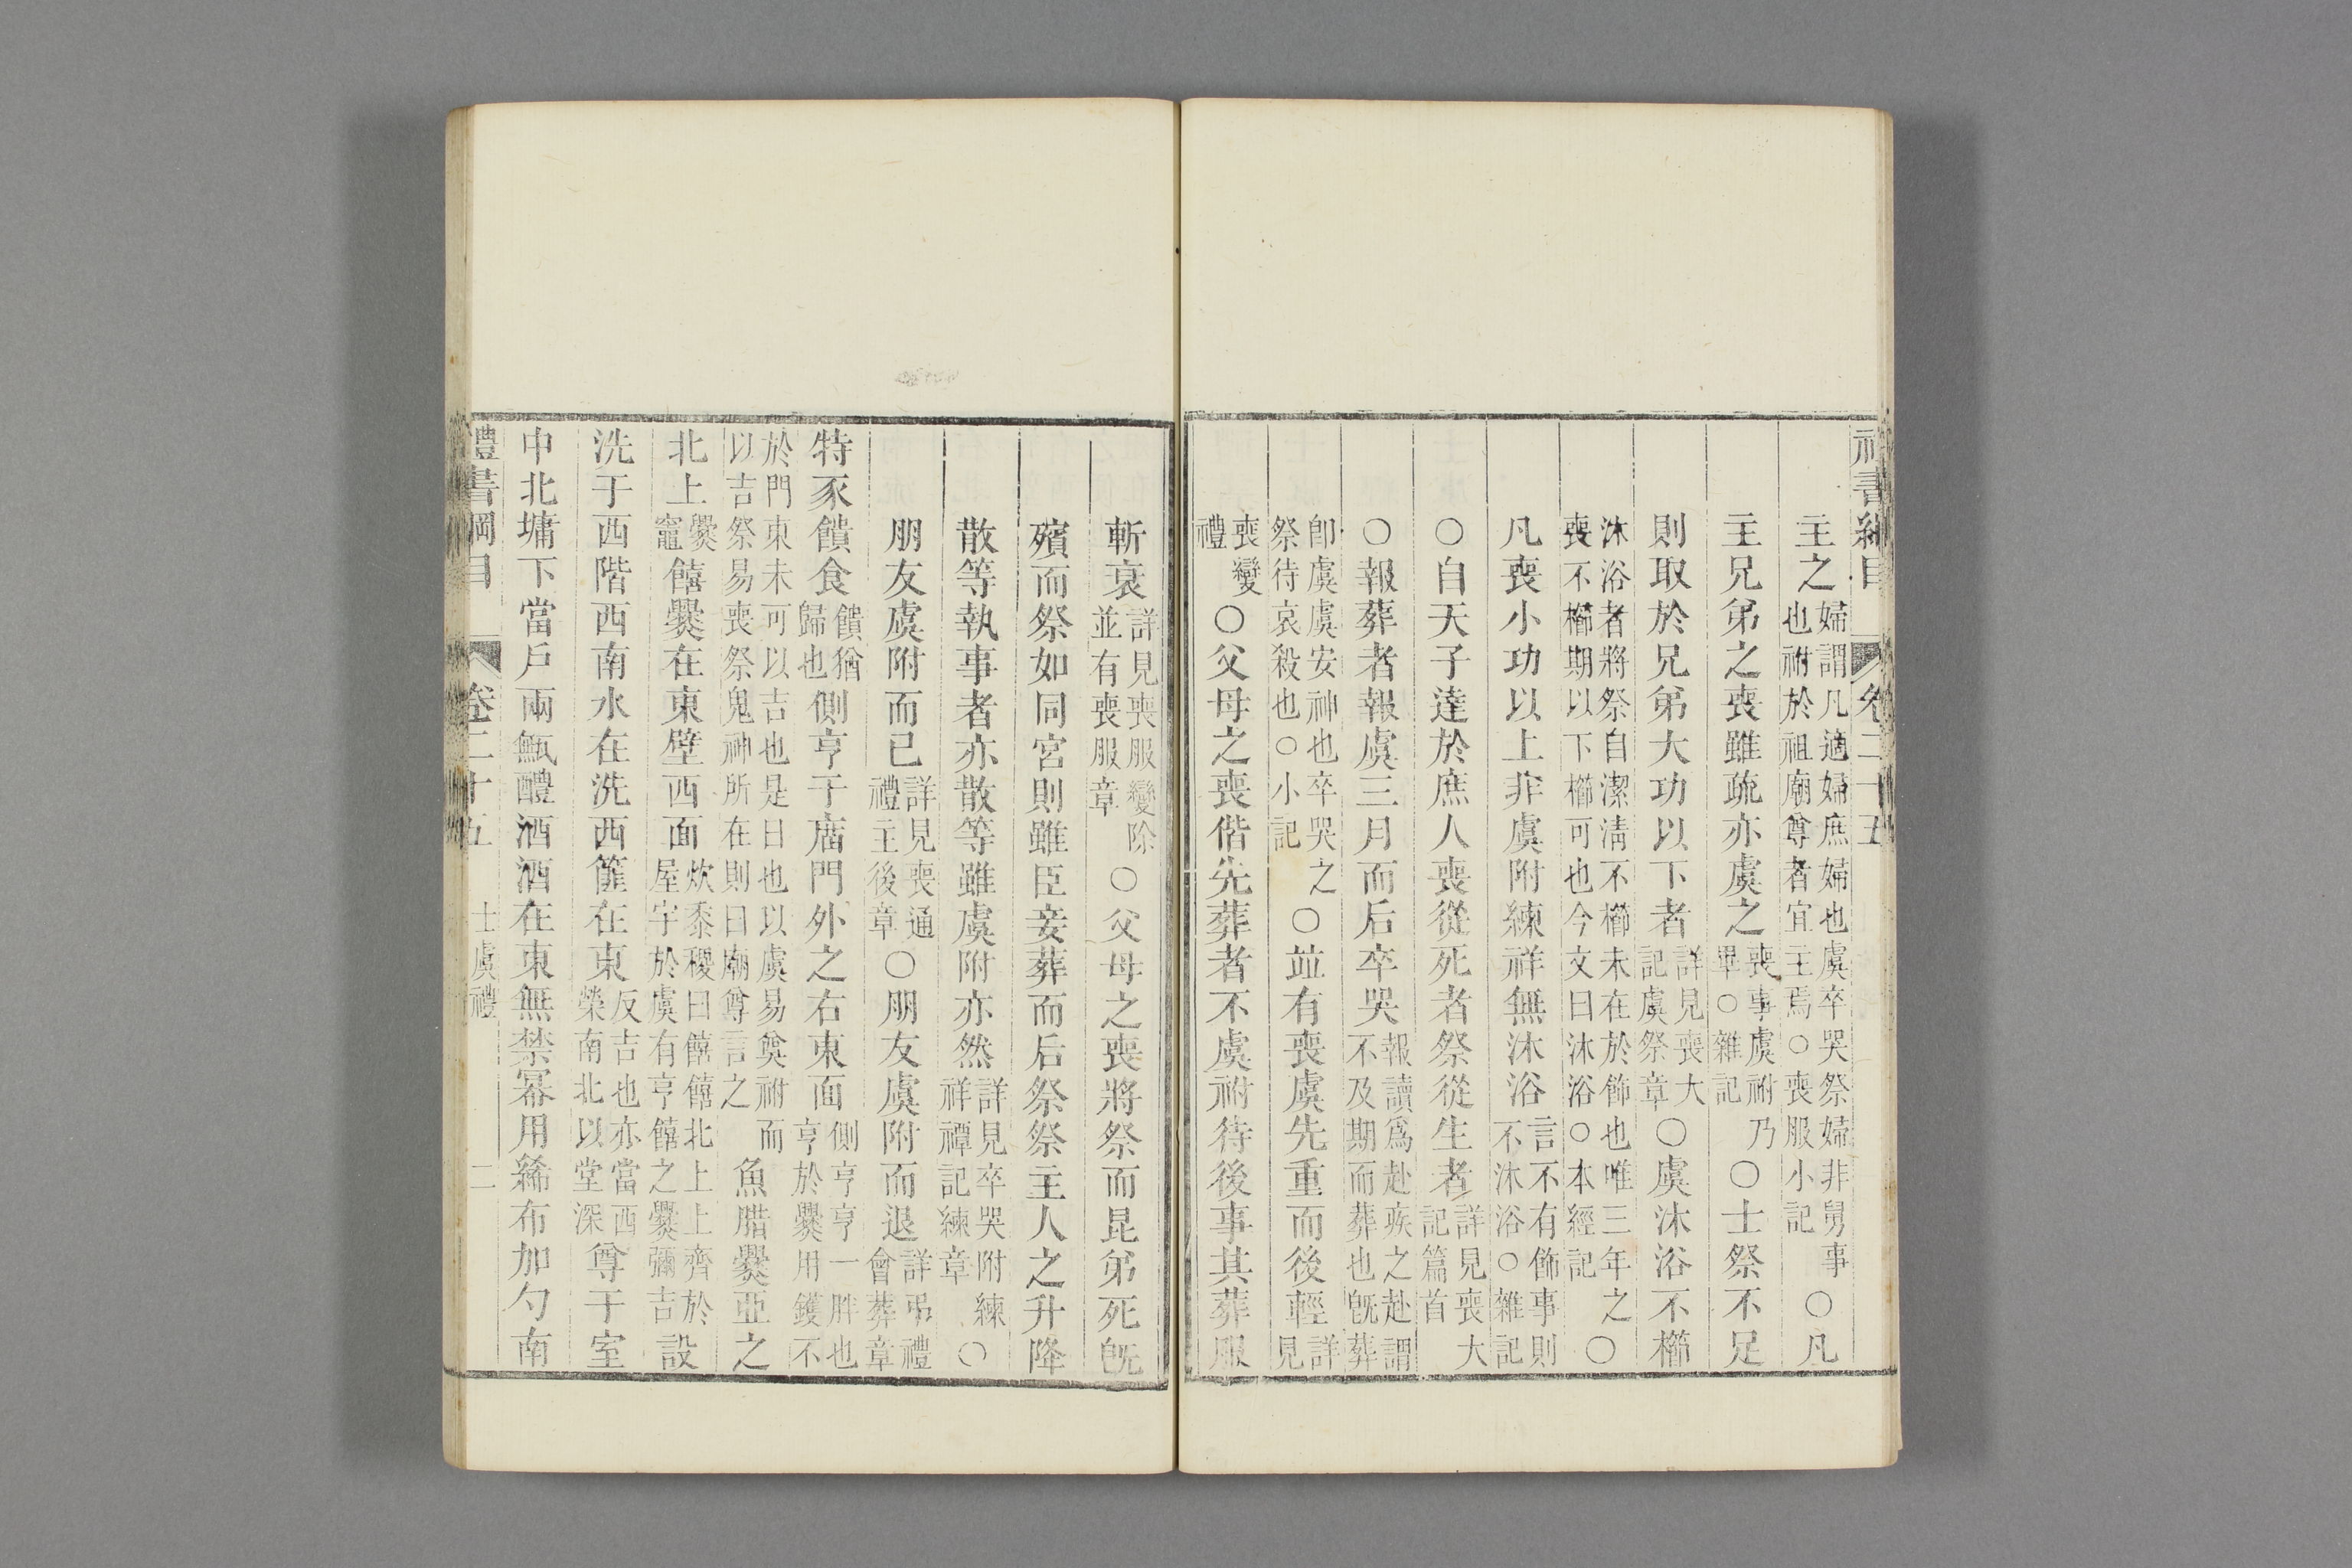 禮書綱目 卷二十五
主之婦謂凡適婦庶婦也虞卒哭祭婦非舅事也祔於祖廟尊者宜主焉○喪服小記○凡
主兄弟之喪雖疏亦虞之喪事虞祔乃畢○雜記○士祭不足
則取於兄弟大功以下者詳見喪大記虞祭章○虞沐浴不櫛
沐浴者將祭自潔淸不櫛未在於飾也唯三年之喪不櫛期以下櫛可也今文曰沐浴○本經記○
凡喪小功以上非虞附練祥無沐浴言不有飾事則不沐浴○雜記
○自天子達於庶人喪從死者祭從生者詳見喪大記篇首
○報葬者報虞三月而后卒哭報讀爲赴疾之赴謂不及期而葬也旣葬
卽虞虞安神也卒哭之祭待哀殺也○小記○竝有喪虞先重而後輕詳見
喪變禮○父母之喪偕先葬者不虞祔待後事其葬服
斬衰詳見喪服變除並有喪服章○父母之喪將祭而昆弟死旣
殯而祭如同宮則雖臣妾葬而后祭祭主人之升降
散等執事者亦散等雖虞附亦然詳見卒哭附練祥禫記練章○
朋友虞附而已詳見喪通禮主後章○朋友虞附而退詳弔禮會葬章
特豕饋食饋猶歸也側亨于廟門外之右東面側亨亨一胖也亨於爨用鑊不
於門東未可以吉也是日也以虞易奠祔而以吉祭易喪祭鬼神所在則曰廟尊言之魚腊爨亞之
北上爨竈饎爨在東壁西面炊黍稷曰饎饎北上上齊於屋宇於虞有亨饎之爨彌吉設
洗于西階西南水在洗西篚在東反吉也亦當西榮南北以堂深尊于室
中北墉下當戶兩甒醴酒酒在東無禁冪用絺布加勺南
禮書綱目 卷二十五 士虞禮 二